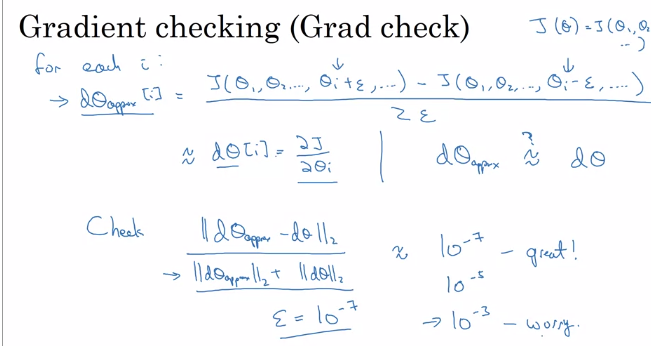 Gradient checking (Grad check)
J(θ) = J(θ₁, θ₂
...)
for each i:
↓ ↓
→ dθapprox[i] = J(θ₁, θ₂, ..., θᵢ+ε, ...) - J(θ₁, θ₂, ..., θᵢ-ε, ...)
2ε
≈ dθ[i] = ∂J/∂θᵢ | dθapprox ?≈ dθ
Check ||dθapprox - dθ||₂
→ ||dθapprox||₂ + ||dθ||₂
≈ 10⁻⁷ - great!
10⁻⁵
ε = 10⁻⁷ → 10⁻³ - worry.